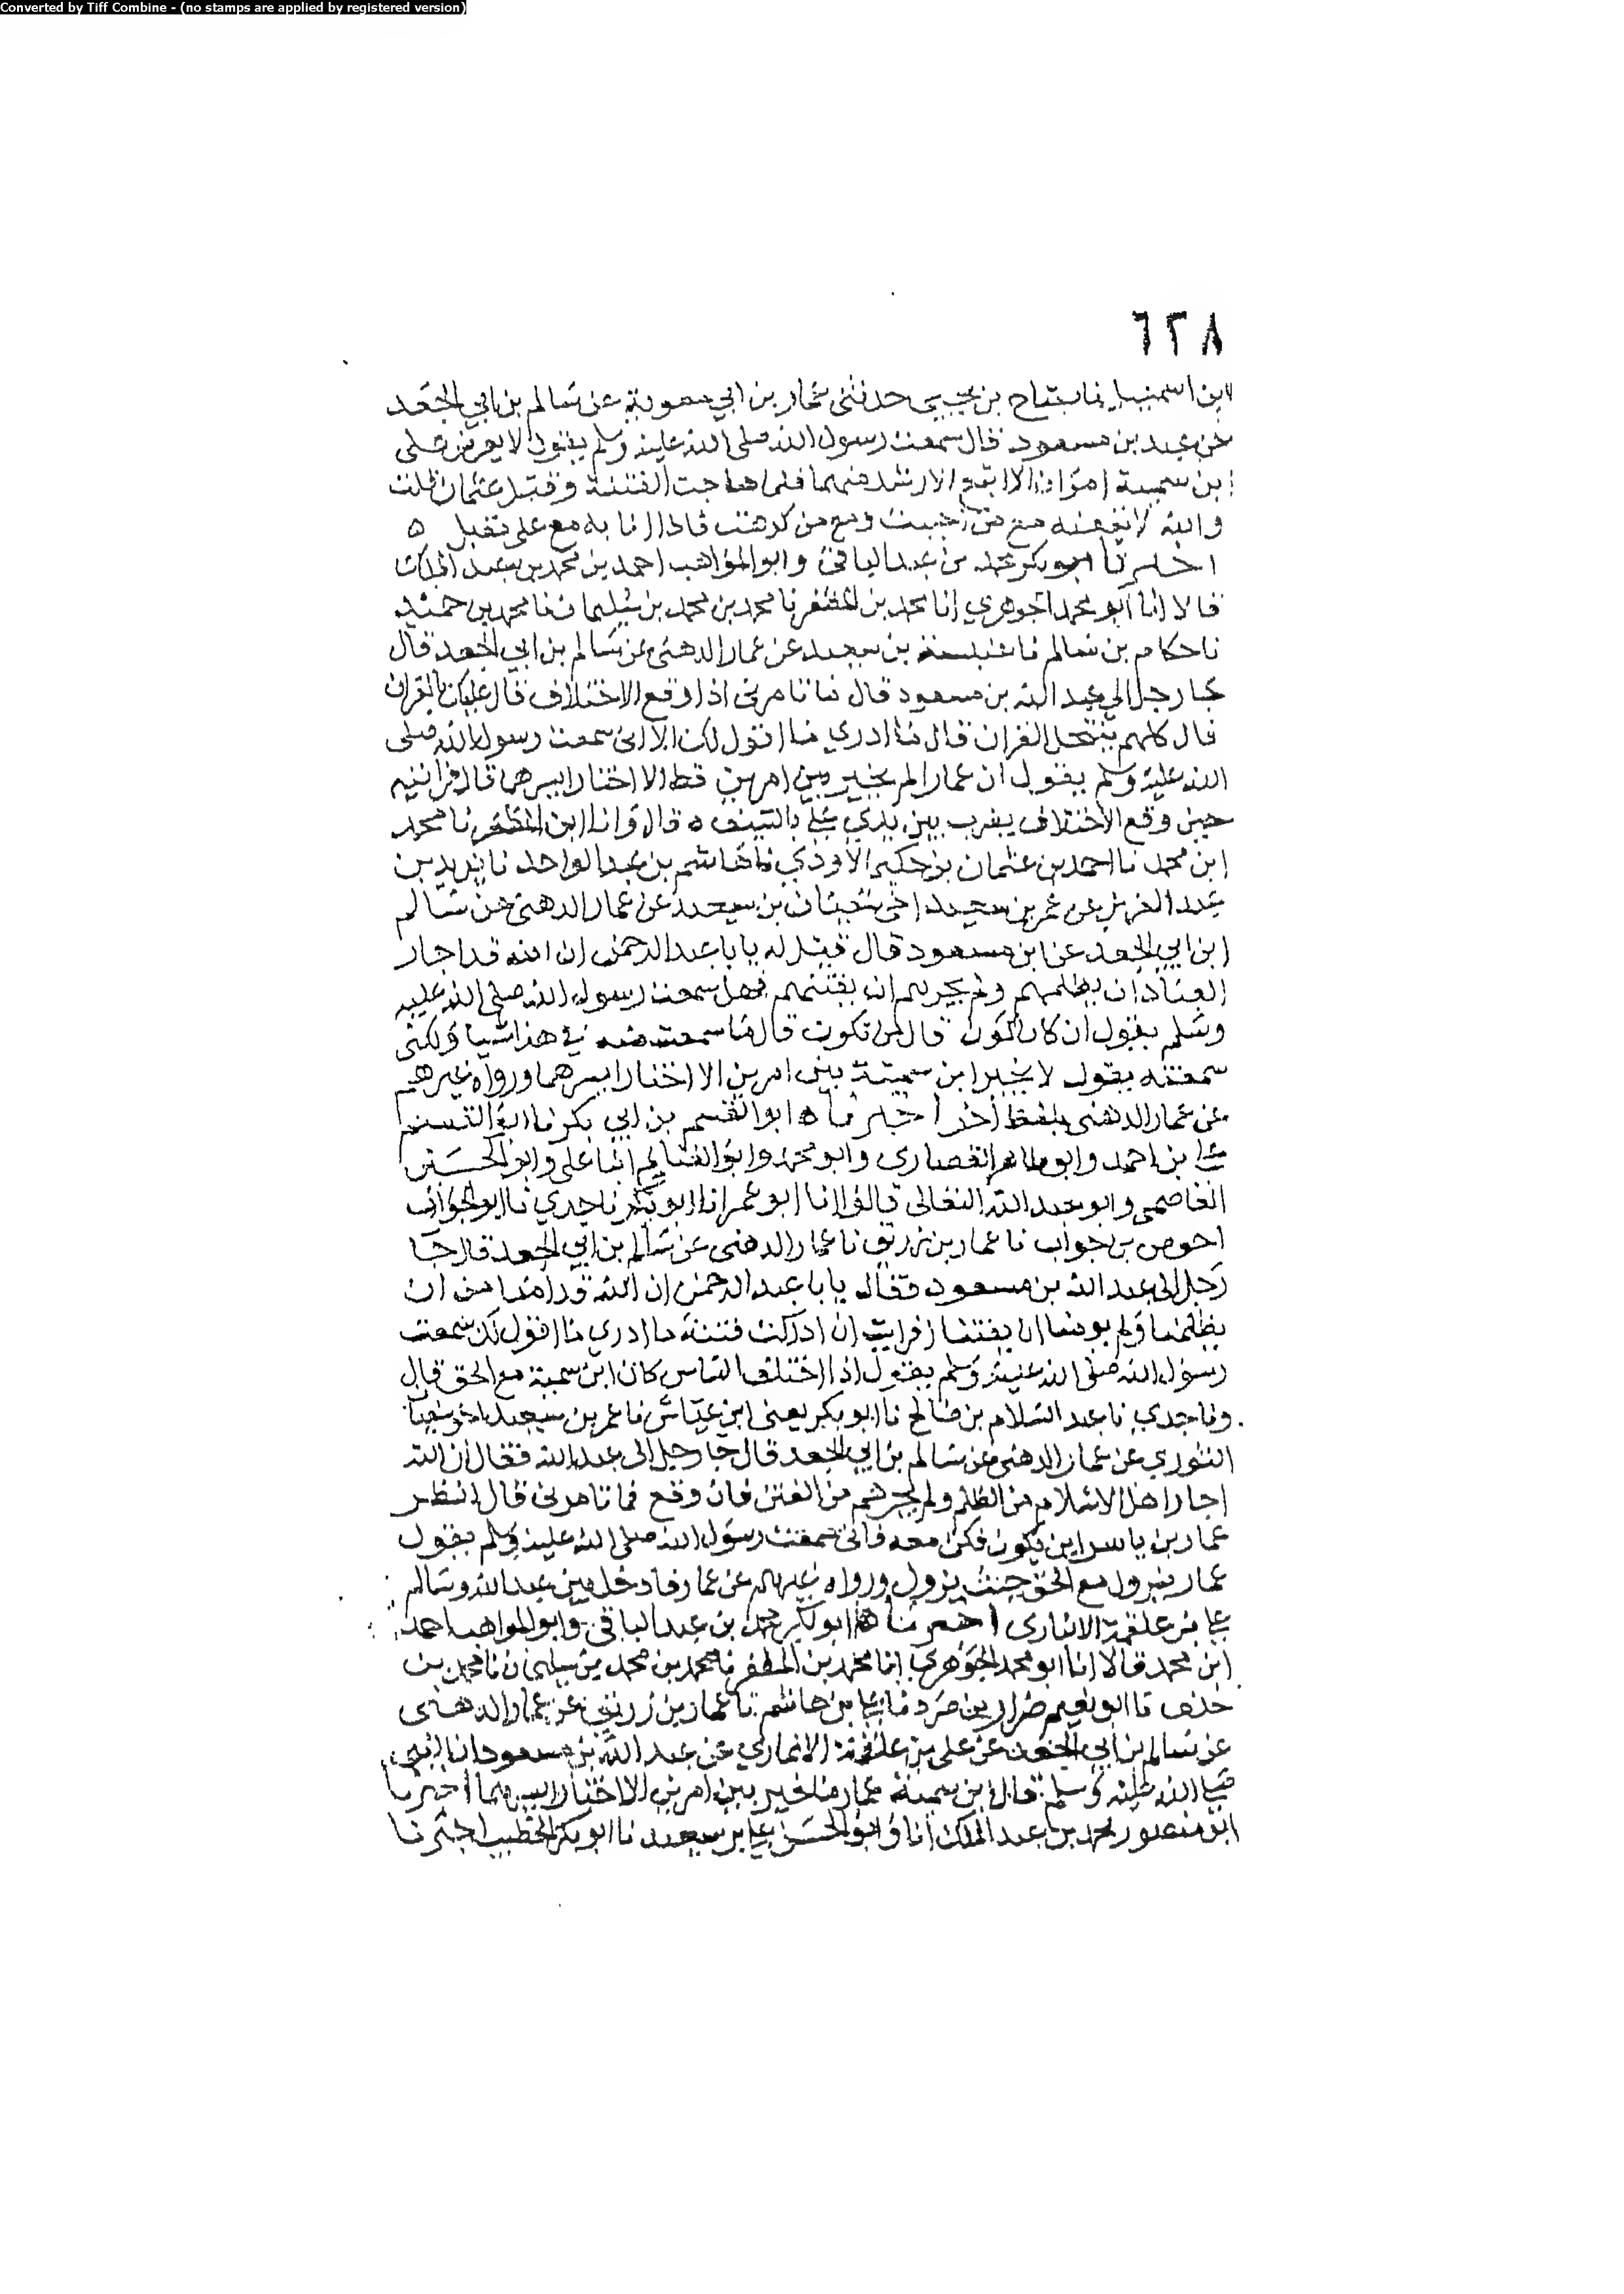 Converted by Tiff Combine - (no stamps are applied by registered version)
٦٢٨
ابن اسمعيل نا مفتاح بن يحيى حدثنى عمار بن ابي معوية عن سالم بن ابي الجعد
عن عبد بن مسعود قال سمعت رسول الله صلى الله عليه وسلم يقول لا يعرض على
ابن سمية امران الا اتبع الارشد منهما فلما هاجت الفتنة وقتل عثمان قلت
والله لاتبعنه مع من احببت ومع من كرهت فاذا انا به مع على مقبل ه
اخبرنا ابو بكر محمد بن عبد الباقى وابو المواهب احمد بن محمد بن عبد الملك
قالا انا ابو محمد الجوهري انا محمد بن المظفر نا محمد بن محمد بن سليمان نا محمد بن حميد
نا حكام بن سالم نا عنبسة بن سعيد عن عمار الدهنى عن سالم بن ابي الجعد قال
جا رجل الى عبد الله بن مسعود قال ما تامرنى اذا وقع الاختلاف قال عليك بالقران
قال كلهم ينتحل القران قال ما ادري ما اقول لك الا انى سمعت رسول الله صلى
الله عليه وسلم يقول ان عمارا لم يخير بين امرين قط الا اختار ايسرهما قال فرايته
حين وقع الاختلاف يضرب بين يدي على بالسيف ه قال وانا ابن المظفر نا محمد
ابن محمد نا احمد بن عثمان بن حكيم الاودي نا هاشم بن عبد الواحد نا يزيد بن
عبد العزيز عن عمر بن سعيد اخى سفيان بن سعيد عن عمار الدهنى عن سالم
ابن ابي الجعد عن ابن مسعود قال قيل له يا با عبد الرحمن ان الله قد اجار
العباد ان يظلمهم ولم يجرهم ان يفتنهم فهل سمعت رسول الله صلى الله عليه
وسلم يقول ان كان الكون قال من تكون قال ما سمعت منه في هذا شيا ولكنى
سمعته يقول لا يخير ابن سمية بين امرين الا اختار ايسرهما ورواه غيرهم
عن عمار الدهنى بلفظ آخر اخبرناه ابو القسم بن ابي بكر نا ابو القسم
على بن احمد وابو طاهر القصارى وابو محمد وابو الغنايم ابنا على وابو الحسين
العاصمى وابو عبد الله النعالى قالوا انا ابو عمر انا ابو بكر نا جدي نا ابو الجواب
احوص بن جواب نا عمار بن زريق نا عمار الدهنى عن سالم بن ابي الجعد قال جا
رجل الى عبد الله بن مسعود فقال يا با عبد الرحمن ان الله قد امنا من ان
يظلمنا ولم يومنا ان يفتنا افرايت ان ادركت فتنة ما ادري ما اقول لك سمعت
رسول الله صلى الله عليه وسلم يقول اذا اختلف الناس كان ابن سمية مع الحق قال
ونا جدي نا عبد السلام بن صالح نا ابو بكر يعنى ابن عياش نا عمر بن سعيد اخو سفيان
الثوري عن عمار الدهنى عن سالم بن ابي الجعد قال جا رجل الى عبد الله فقال ان الله
اجار اهل الاسلام من الظلم ولم يجرهم من الفتن فان وقع فما تامرنى قال انظر
عمار بن ياسر اين يكون فكن معه فانى سمعت رسول الله صلى الله عليه وسلم يقول
عمار يزول مع الحق حيث يزول ورواه غيرهم عن عمار فادخل بين عبد الله وسالم
على بن علقمة الانمارى اخبرناه ابو بكر محمد بن عبد الباقى وابو المواهب احمد
ابن محمد قالا انا ابو محمد الجوهري انا محمد بن المظفر نا محمد بن محمد بن سليمان نا محمد بن
خلف نا ابو نعيم ضرار بن صرد نا على بن هاشم نا عمار بن زريق عن عمار الدهنى
عن سالم بن ابي الجعد عن على بن علقمة الانماري عن عبد الله بن مسعود ان النبي
صلى الله عليه وسلم قال ابن سمية عمار ما خير بين امرين الا اختار ايسرهما اخبرنا
ابو منصور محمد بن عبد الملك انا وابو الحسن على بن سعيد نا ابو بكر الخطيب اخبرنا